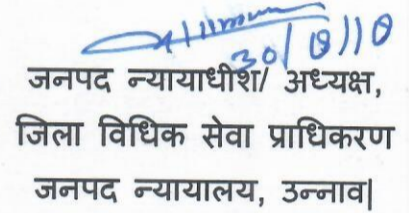 जनपद न्यायाधीश/ अध्यक्ष,
जिला विधिक सेवा प्राधिकरण
जनपद न्यायालय, उन्नाव|